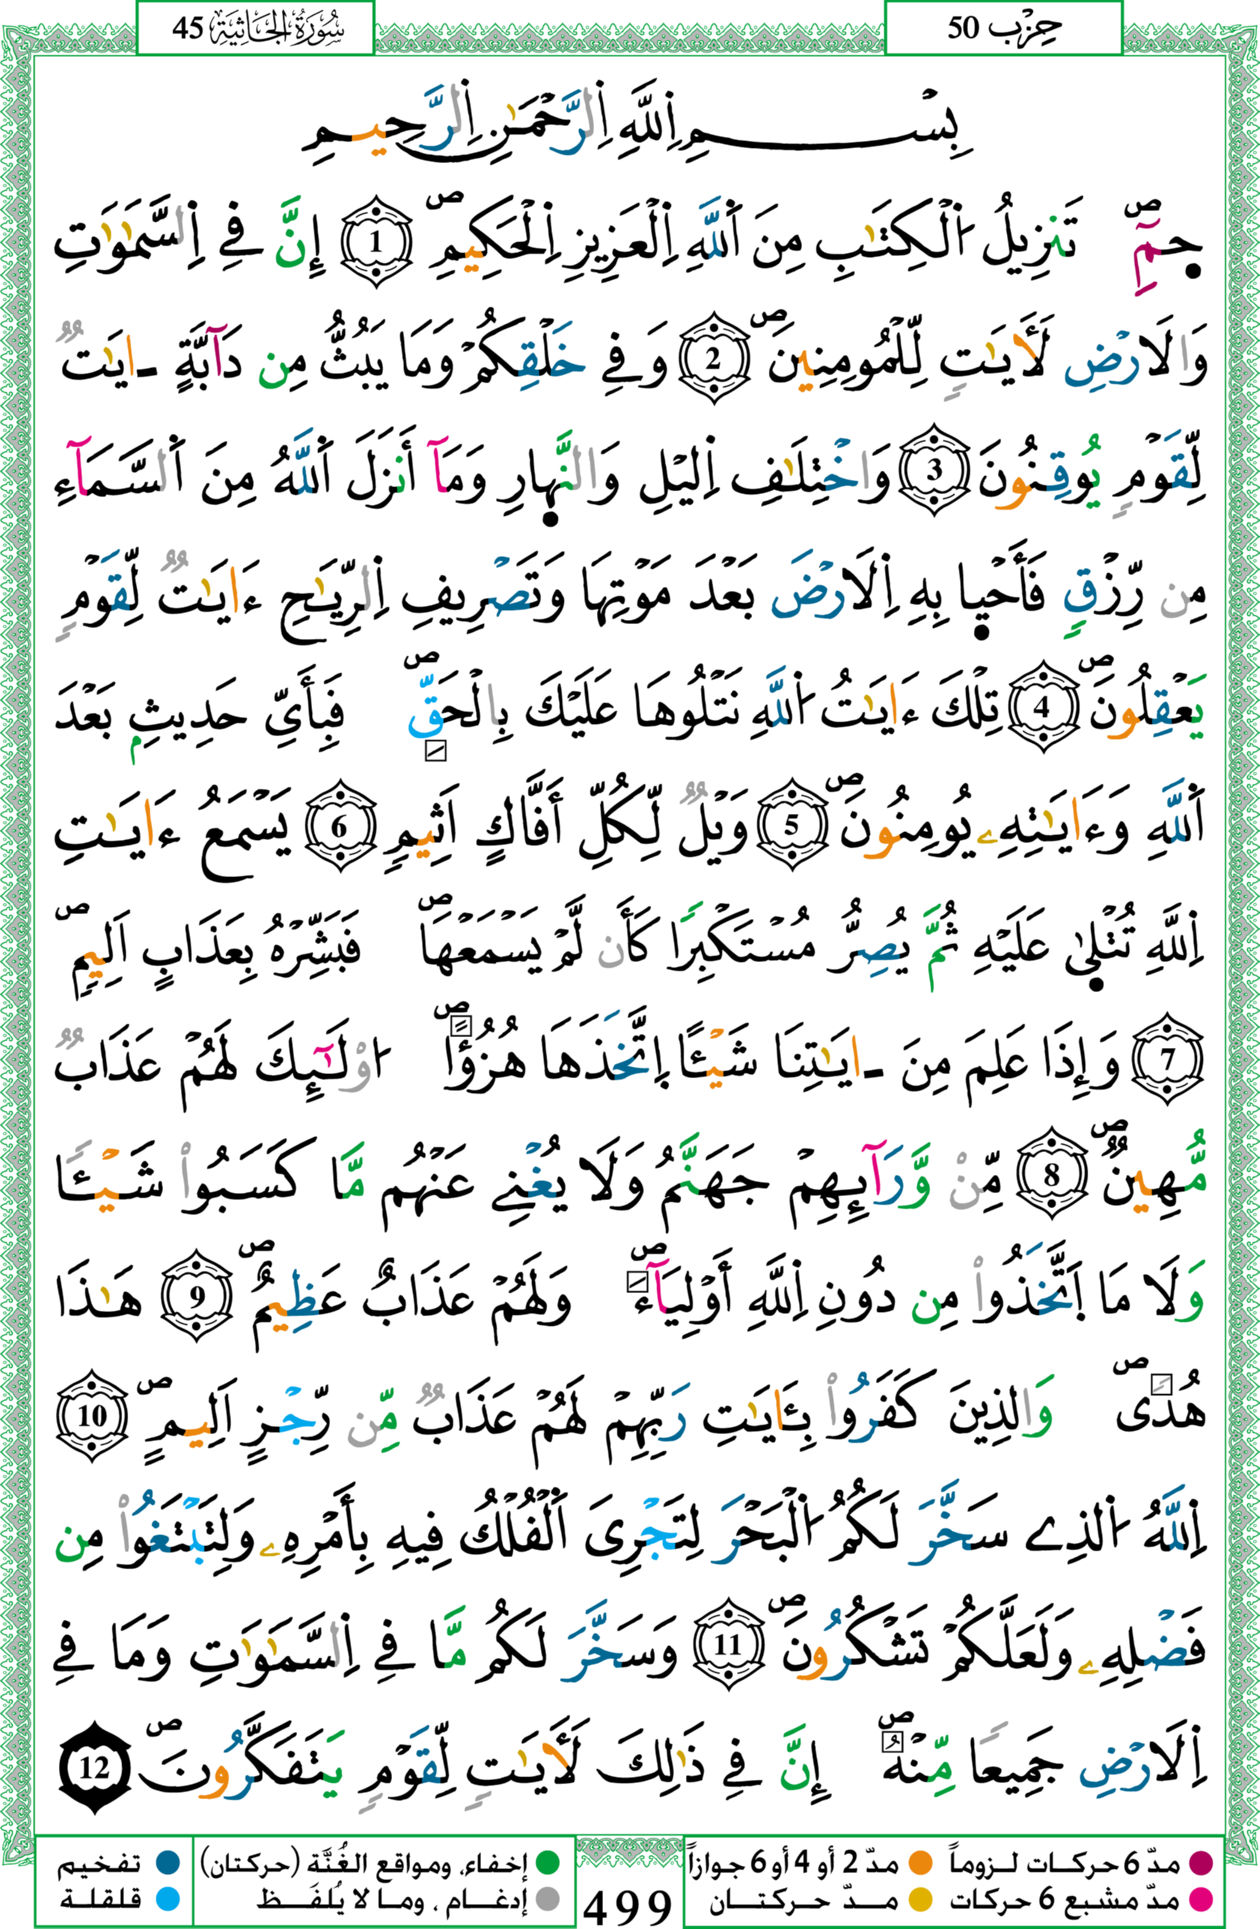 حِزْب 50
سُورَةُ الجَاثِيَةِ 45
بِسْمِ اِ۬للَّهِ اِ۬لرَّحْمَٰنِ اِ۬لرَّحِيمِ
ج۪مِٓۖ تَنزِيلُ اُ۬لْكِتَٰبِ مِنَ اَ۬للَّهِ اِ۬لْعَزِيزِ اِ۬لْحَكِيمِۖ 1 إِنَّ فِے اِ۬لسَّمَٰوَٰتِ
وَالَارْضِ لَأٓيَٰتٖ لِّلْمُومِنِينَۖ 2 وَفِے خَلْقِكُمْ وَمَا يَبُثُّ مِن دَآبَّةٍ ـ ايَٰتٞ
لِّقَوْمٖ يُوقِنُونَ 3 وَاخْتِلَٰفِ اِ۬ليْلِ وَالنَّه۪ارِ وَمَآ أَنزَلَ اَ۬للَّهُ مِنَ اَ۬لسَّمَآءِ
مِن رِّزْقٖ فَأَحْي۪ا بِهِ اِ۬لَارْضَ بَعْدَ مَوْتِهَا وَتَصْرِيفِ اِ۬لرِّيَٰحِ ءَايَٰتٞ لِّقَوْمٖ
يَعْقِلُونَۖ 4 تِلْكَ ءَايَٰتُ اُ۬للَّهِ نَتْلُوهَا عَلَيْكَ بِالْحَقِّۖ فَبِأَيِّ حَدِيثِۢ بَعْدَ
اَ۬للَّهِ وَءَايَٰتِهِۦ يُومِنُونَۖ 5 وَيْلٞ لِّكُلِّ أَفَّاكٍ اَثِيمٖ 6 يَسْمَعُ ءَايَٰتِ
اِ۬للَّهِ تُتْل۪ىٰ عَلَيْهِ ثُمَّ يُصِرُّ مُسْتَكْبِراٗ كَأَن لَّمْ يَسْمَعْهَاۖ فَبَشِّرْهُ بِعَذَابٍ اَلِيمٖۖ
7 وَإِذَا عَلِمَ مِنَ ـ ايَٰتِنَا شَيْـًٔا اِ۪تَّخَذَهَا هُزُؤاًۖ اُ۟وْلَٰٓئِكَ لَهُمْ عَذَابٞ
مُّهِينٞۖ 8 مِّنْ وَّرَآئِهِمْ جَهَنَّمُ وَلَا يُغْنِے عَنْهُم مَّا كَسَبُواْ شَيْـٔاٗ
وَلَا مَا اَ۪تَّخَذُواْ مِن دُونِ اِ۬للَّهِ أَوْلِيَآءَۖ وَلَهُمْ عَذَابٌ عَظِيمٌۖ 9 هَٰذَا
هُدىٗۖ وَالذِينَ كَفَرُواْ بِـَٔايَٰتِ رَبِّهِمْ لَهُمْ عَذَابٞ مِّن رِّجْزٍ اَلِيمٖۖ 10
اِ۬للَّهُ اُ۬لذِے سَخَّرَ لَكُمُ اُ۬لْبَحْرَ لِتَجْرِيَ اَ۬لْفُلْكُ فِيهِ بِأَمْرِهِۦ وَلِتَبْتَغُواْ مِن
فَضْلِهِۦ وَلَعَلَّكُمْ تَشْكُرُونَۖ 11 وَسَخَّرَ لَكُم مَّا فِے اِ۬لسَّمَٰوَٰتِ وَمَا فِے
اِ۬لَارْضِ جَمِيعاٗ مِّنْهُۖ إِنَّ فِے ذَٰلِكَ لَأٓيَٰتٖ لِّقَوْمٖ يَتَفَكَّرُونَۖ 12
مدّ 6 حركات لـزوماً مدّ 2 أو 4 أو 6 جوازاً
مدّ مشبع 6 حركات مـدّ حركتـان
499
إخفاء، ومواقع الغُنَّة (حركتان) تفخيم
إدغام ، ومـا لا يُلفَـظ قلقلـة